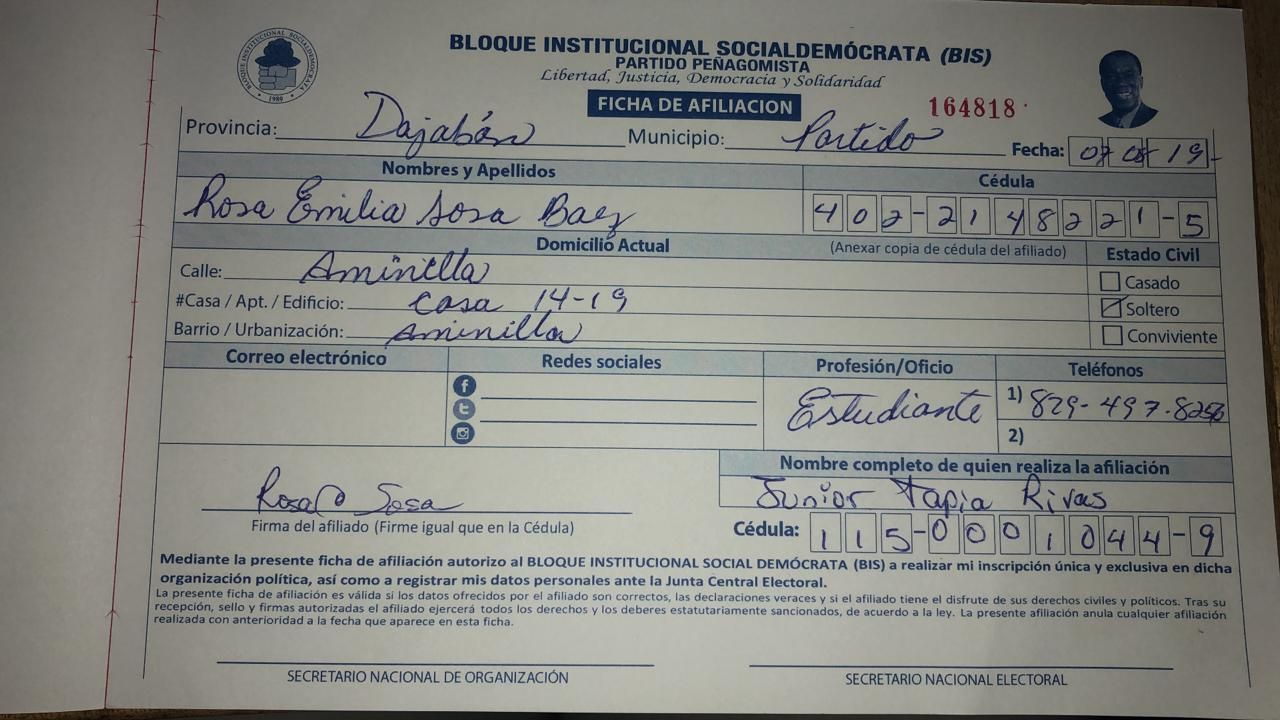 BLOQUE INSTITUCIONAL SOCIALDEMÓCRATA (BIS)
PARTIDO PEÑAGOMISTA
Libertad, Justicia, Democracia y Solidaridad
BLOQUE INSTITUCIONAL SOCIALDEMOCRATA
1989
FICHA DE AFILIACION
164818
Provincia: Dajabón Municipio: Partido Fecha: 07 08 19
Nombres y Apellidos Cédula
Rosa Emilia Sosa Baez 402-2148221-5
Domicilio Actual (Anexar copia de cédula del afiliado) Estado Civil
Calle: Aminilla
Casado
#Casa / Apt. / Edificio: casa 14-19
Soltero
Barrio / Urbanización: Aminilla
Conviviente
Correo electrónico Redes sociales Profesión/Oficio Teléfonos
Estudiante 1) 829-497-8256
2)
Nombre completo de quien realiza la afiliación
Rosa Sosa Junior Tapia Rivas
Firma del afiliado (Firme igual que en la Cédula) Cédula: 115-0001044-9
Mediante la presente ficha de afiliación autorizo al BLOQUE INSTITUCIONAL SOCIAL DEMÓCRATA (BIS) a realizar mi inscripción única y exclusiva en dicha
organización política, así como a registrar mis datos personales ante la Junta Central Electoral.
La presente ficha de afiliación es válida si los datos ofrecidos por el afiliado son correctos, las declaraciones veraces y si el afiliado tiene el disfrute de sus derechos civiles y políticos. Tras su
recepción, sello y firmas autorizadas el afiliado ejercerá todos los derechos y los deberes estatutariamente sancionados, de acuerdo a la ley. La presente afiliación anula cualquier afiliación
realizada con anterioridad a la fecha que aparece en esta ficha.
SECRETARIO NACIONAL DE ORGANIZACIÓN SECRETARIO NACIONAL ELECTORAL